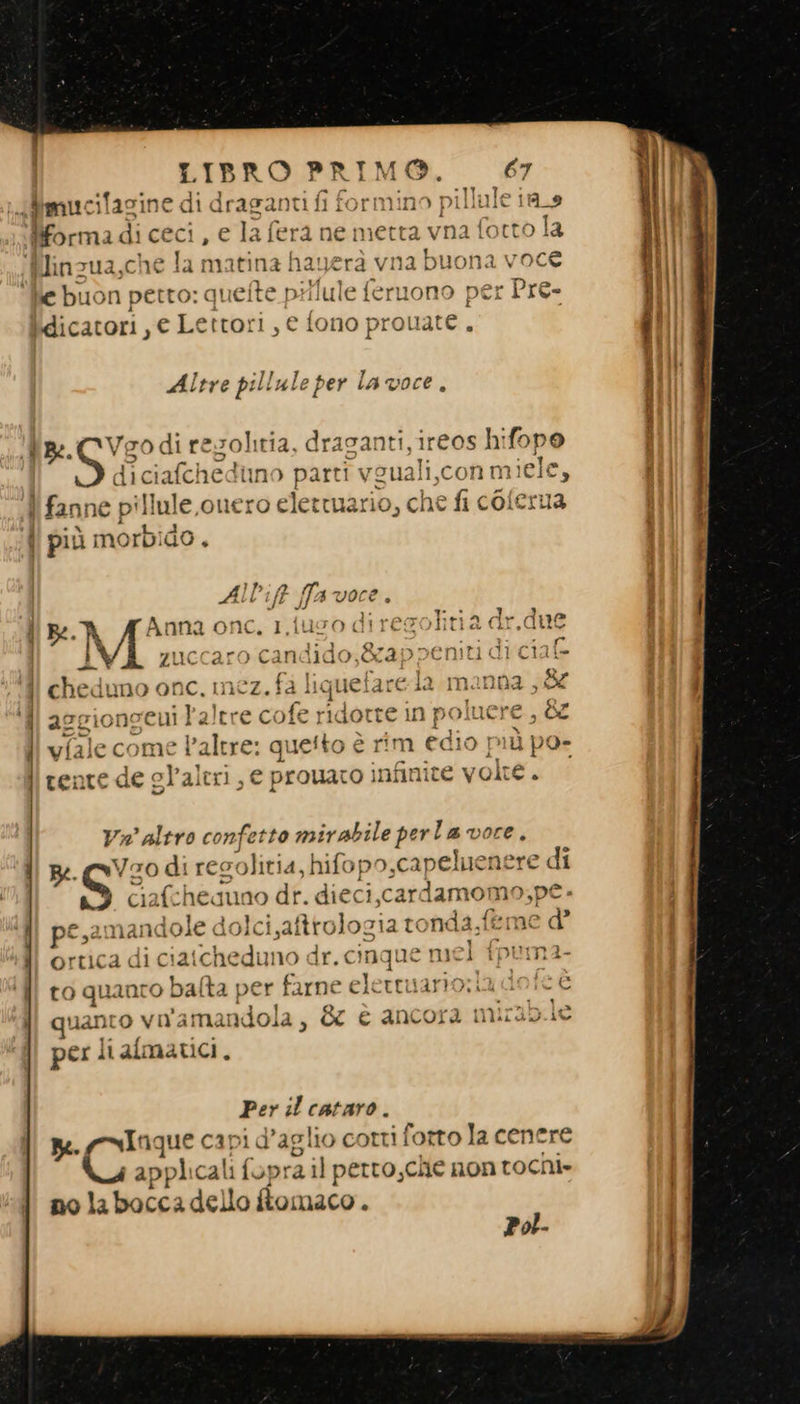 LIBRO PRIMO. 67
mucilagine di draganti ſi formino pillule in
forma di ceci, e la ſera ne metta vna ſotto la
linzua,che la matina hauerà vna buona voce
e buon petto: queſte pillule ſeruono per Pre-
dicatori, e Lettori, e ſono prouate.
Altre pillule per la voce.
℞. SVgo di regolitia, draganti, ireos hiſopo
di ciaſcheduno parti vguali,con miele,
fanne pillule,ouero elettuario, che ſi cōſerua
più morbido.
All'iſt ſſa voce.
℞. MAnna onc. 1.ſugo di regolitia dr.due
zuccaro candido,& appeniti di ciaſ-
cheduno onc. mez. fa liquefare la manna, &
aggiongeui l'altre coſe ridotte in poluere, &
vſale come l'altre: queſto è rimedio più po-
tente de gl'altri, e prouato infinite volte.
Vn'altro confetto mirabile per la voce.
℞. SVgo di regolitia, hiſopo,capeluenere di
ciaſcheduno dr. dieci,cardamomo,pe-
pe,amandole dolci,aſtrologia tonda,ſeme d'
ortica di ciaſcheduno dr. cinque mel ſpuma-
to quanto baſta per farne elettuario:la doſe è
quanto vn'amandola, & è ancora mirabile
per li aſmatici.
Per il cataro.
℞. CInque capi d'aglio cotti ſotto la cenere
applicali ſopra il petto,che non tochi-
no la bocca dello ſtomaco.
Pol-